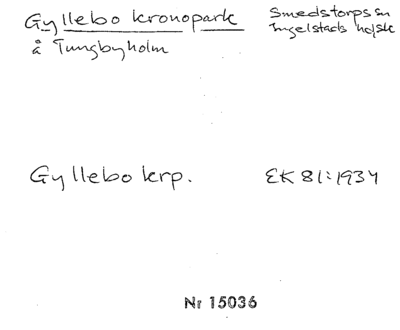 Gyllebo kronopark Smedstorps sn
å Tungbyholm Ingelstads hd
Gyllebo krp. EK 81:1934
Nr 15036